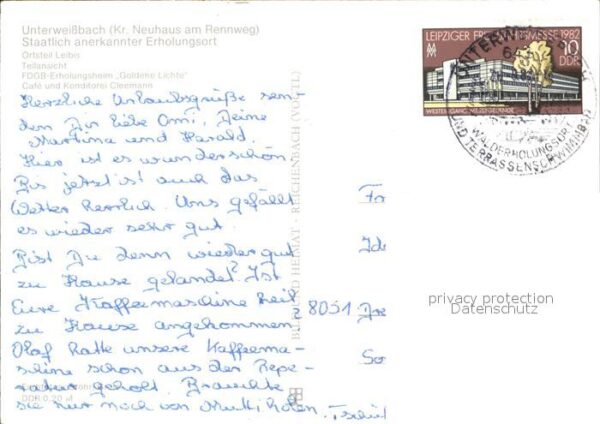 Unterweißbach (Kr. Neuhaus am Rennweg)
Staatlich anerkannter Erholungsort
Ortsteil Leibis
Teilansicht
FDGB-Erholungsheim „Goldene Lichte"
Café und Konditorei Cleemann
Herzliche Urlaubsgrüße sen-
den Dir liebe Omi, Deine
Martina und Harald.
Hier ist es wunderschön,
Bis jetzt ist auch das
Wetter herrlich. Uns gefällt
es wieder sehr gut.
Bist Du denn wieder gut
zu Hause gelandet? Ist
Eure Kaffeemaschine heil
zu Hause angekommen?
Olaf hatte unsere Kaffeema-
schine schon aus der Repe-
ratur geholt. Brauchte
sie nur noch von Mutti holen. Tschüß
DDR 0,20 M
BILD UND HEIMAT · REICHENBACH (VOGTL)
LEIPZIGER FRÜHJAHRSMESSE 1982
MM
10
DDR
WESTEINGANG MESSEGELÄNDE
WALDERHOLUNGSORT
UND TERRASSENSCHWIMMBAD
Fr
8051 Dre
So
privacy protection
Datenschutz